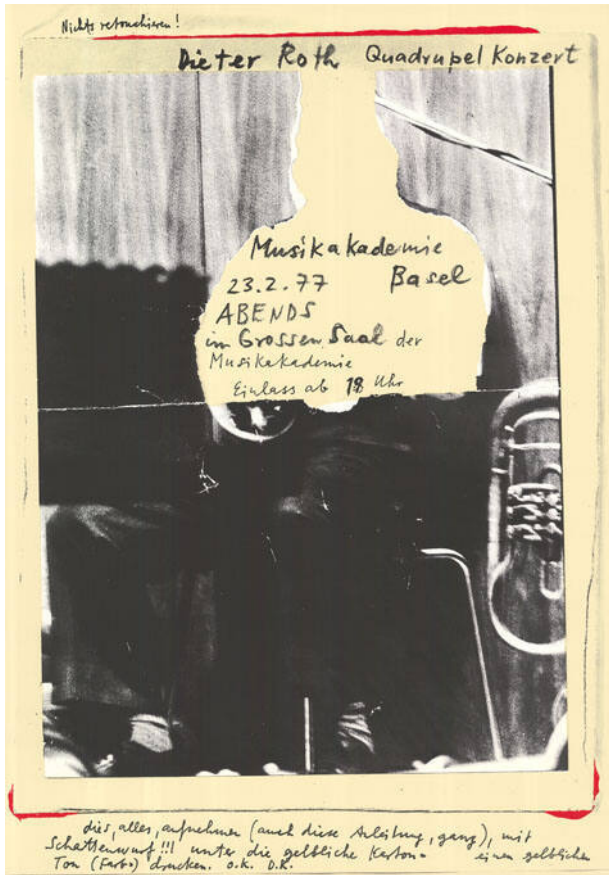 Nichts retouchieren!
Dieter Roth Quadrupel Konzert
Musikakademie
23.2.77 Basel
ABENDS
im Grossen Saal der
Musikakademie
Einlass ab 18 Uhr
dies, alles, aufnehmen (auch diese Anleitung, ganz), mit
Schattenwurf!!! unter die gelbliche Karton- einen gelblichen
Ton (Farbe) drucken. o.k. D.R.